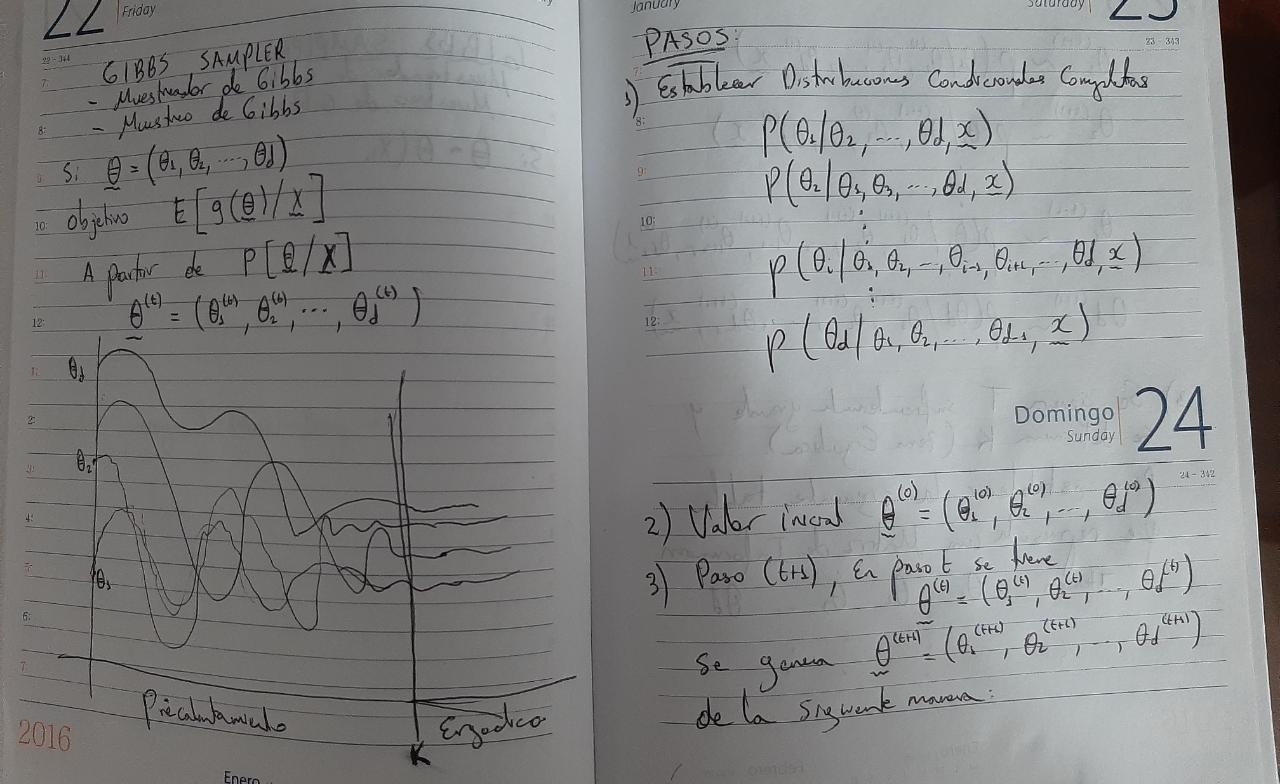 22
Friday
22 - 344
GIBBS SAMPLER
- Muestreador de Gibbs
- Muestreo de Gibbs
7:
8:
9:
Si θ = (θ₁, θ₂, ..., θd)
10:
Objetivo E[g(θ)/X]
11:
A partir de P[θ/X]
12:
θ⁽ᵗ⁾ = (θ₁⁽ᵗ⁾, θ₂⁽ᵗ⁾, ..., θd⁽ᵗ⁾)
1:
θd
2:
3:
θ₂
4:
5:
θ₁
6:
7:
Precalentamiento
Ergodico
K
2016
Enero
January
Saturday
23
23 - 343
PASOS:
7:
1) Establecer Distribuciones Condicionales Completas
8:
P(θ₁/θ₂, ..., θd, x)
9:
P(θ₂/θ₁, θ₃, ..., θd, x)
10:
⋮
11:
P(θi/θ₁, θ₂, ..., θi-1, θi+1, ..., θd, x)
⋮
12:
P(θd/θ₁, θ₂, ..., θd-1, x)
Domingo
Sunday
24
24 - 342
2) Valor inicial θ⁽⁰⁾ = (θ₁⁽⁰⁾, θ₂⁽⁰⁾, ..., θd⁽⁰⁾)
3) Paso (t+1), En paso t se tiene
θ⁽ᵗ⁾ = (θ₁⁽ᵗ⁾, θ₂⁽ᵗ⁾, ..., θd⁽ᵗ⁾)
se genera θ⁽ᵗ⁺¹⁾ = (θ₁⁽ᵗ⁺¹⁾, θ₂⁽ᵗ⁺¹⁾, ..., θd⁽ᵗ⁺¹⁾)
de la siguiente manera: